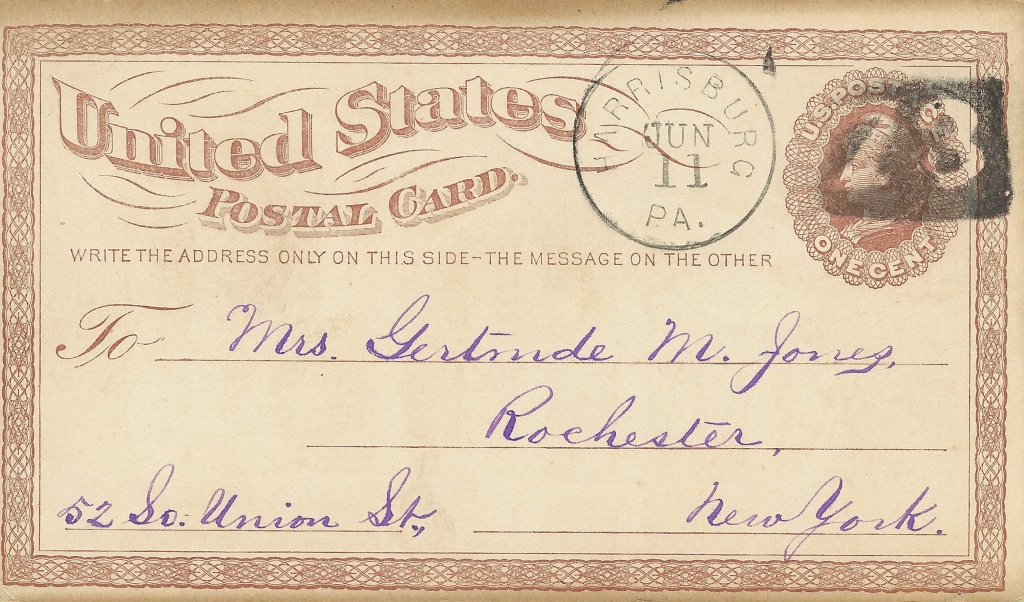 United States
POSTAL CARD.
HARRISBURG
JUN
11
PA.
U.S. POST
ONE CENT
WRITE THE ADDRESS ONLY ON THIS SIDE—THE MESSAGE ON THE OTHER
To Mrs. Gertrude M. Jones,
Rochester,
52 So. Union St.,
New York.